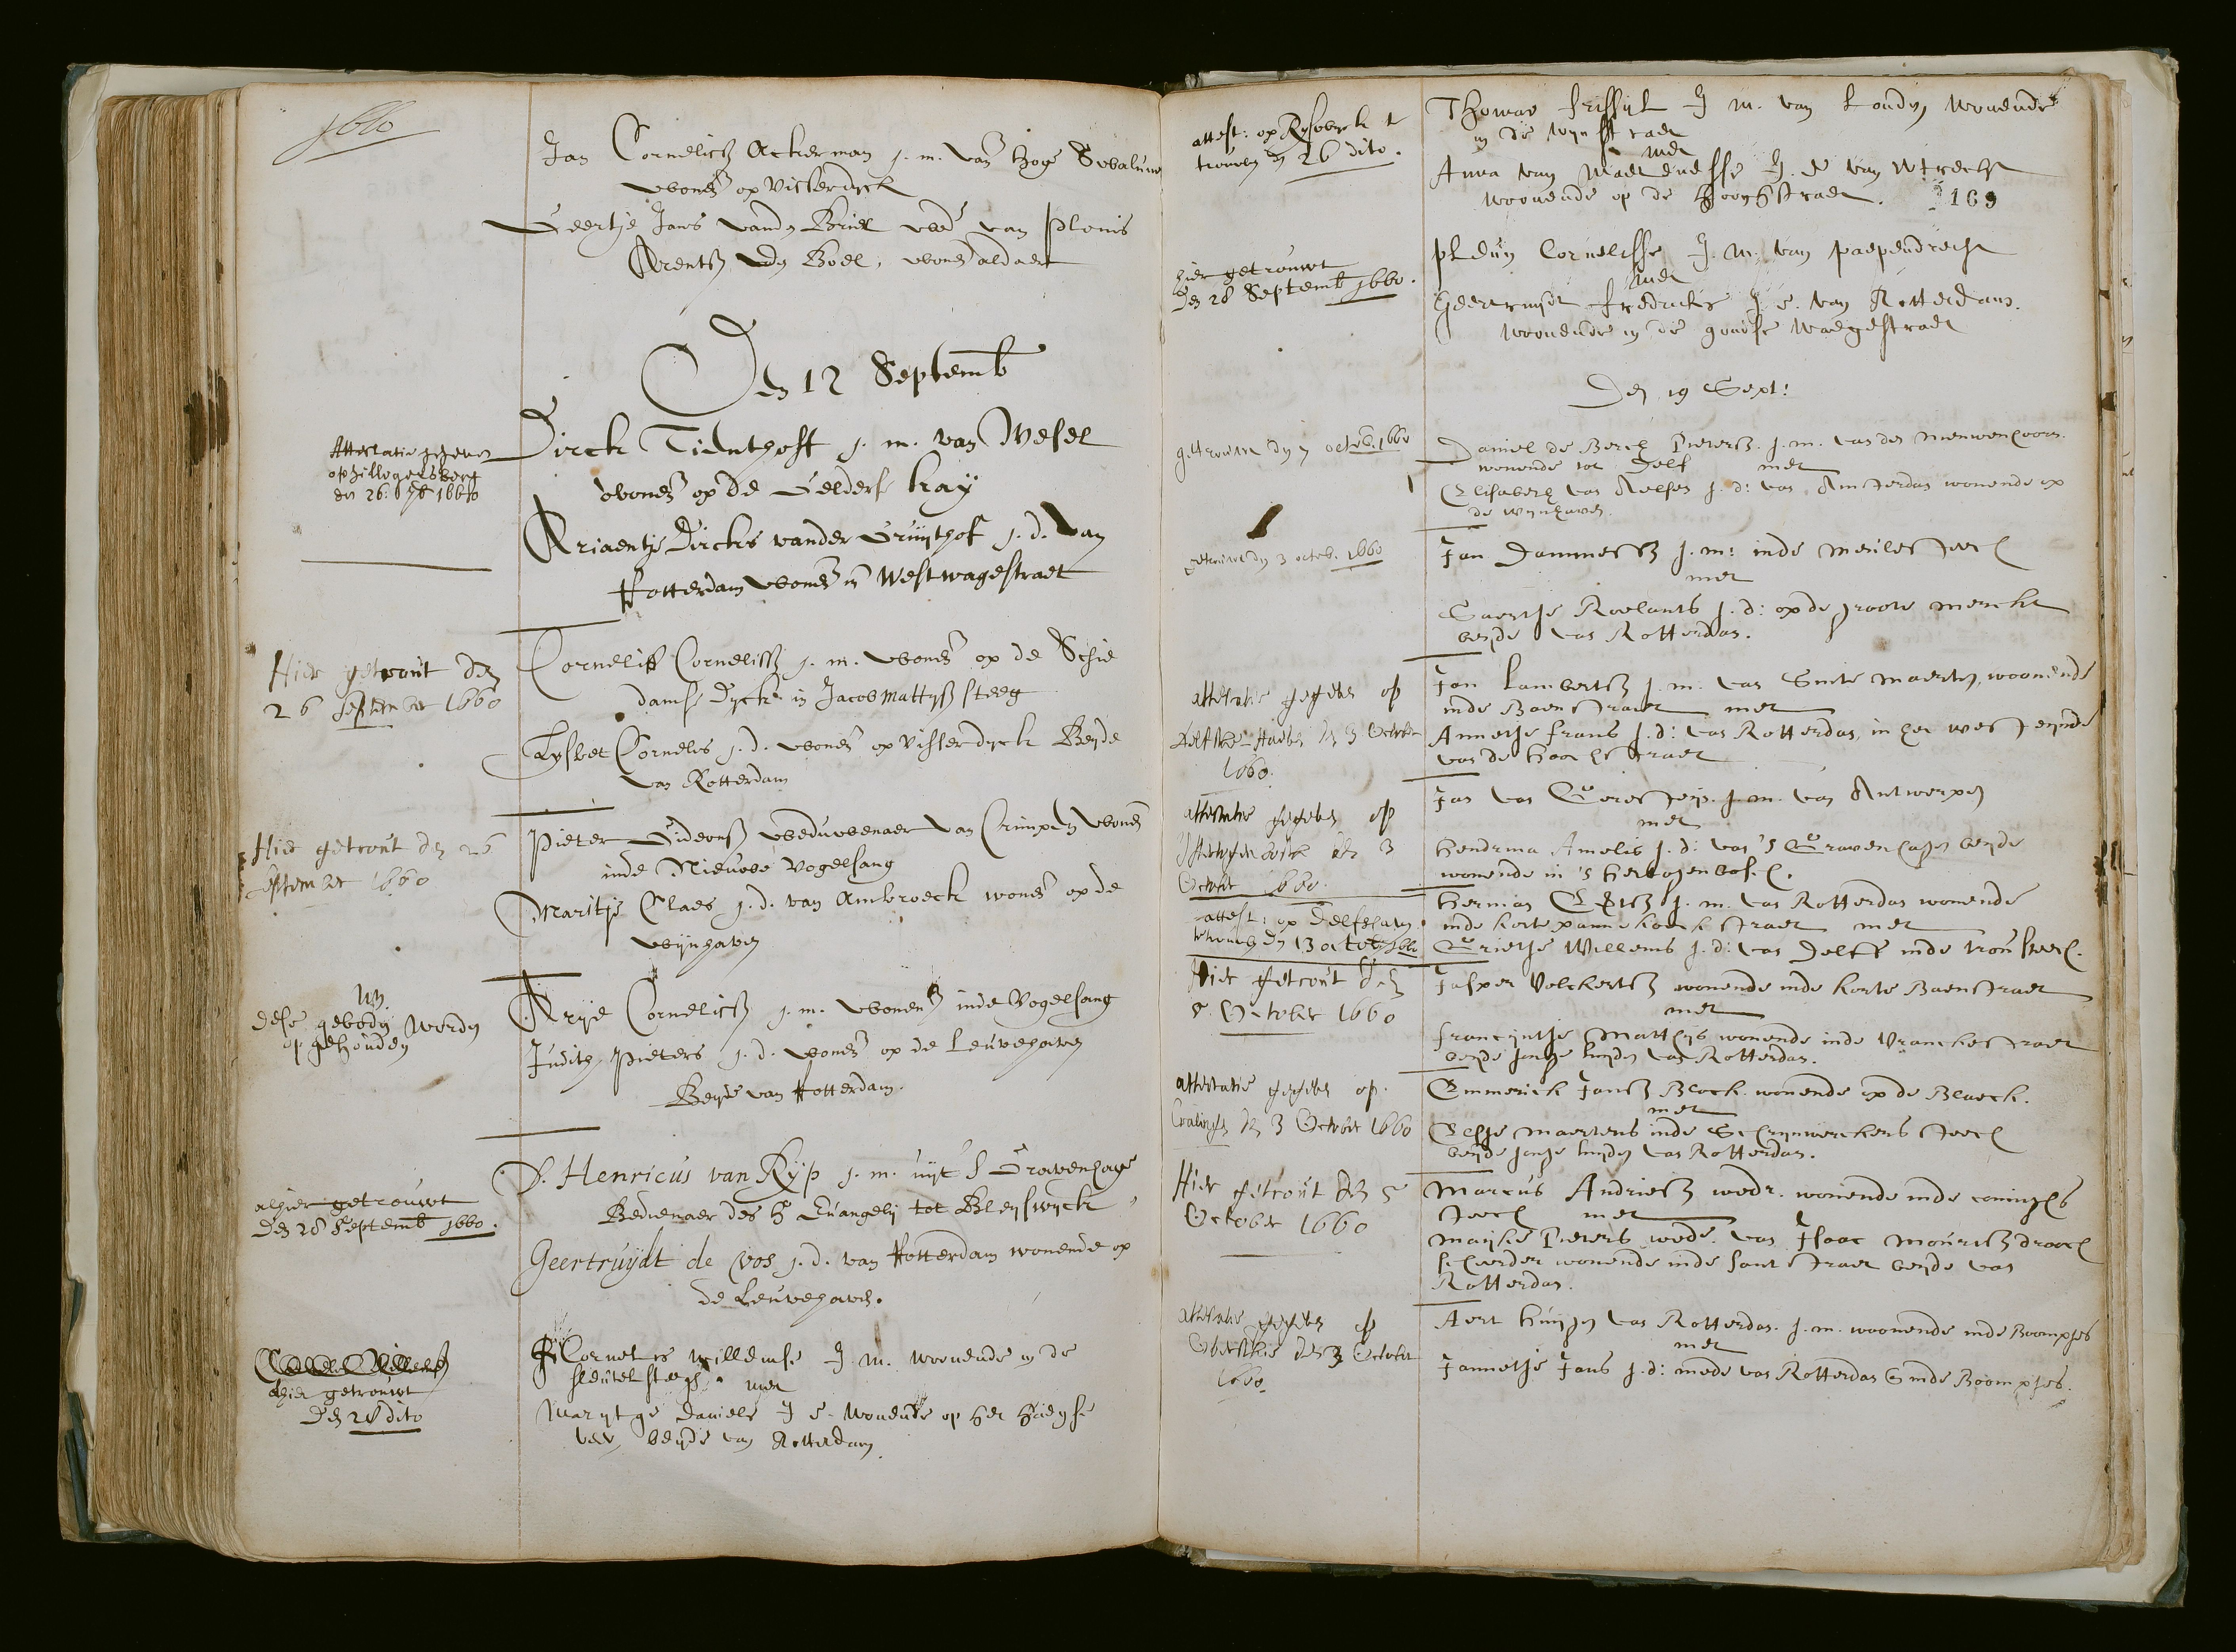 1660
Jan Cornelisz Ackerman j. m. van Hoge Swaluwe
wonend op Visserdyck
Geertje Jans vanden Briel wed van Plonis
Arentsz vdn Boel, wonend aldaer
Den 12 Septemb
Attestatie gegeven
op hillegersberg
den 26: 7b 1660
Dirck Tienthoff j. m. van Wesel
wonend op de Gelderse kay
Ariaentje Dircks vander Gruijthof j. d. van
Rotterdam wonend in Westwagestraet
Hier getrout den
26 september 1660
Cornelis Cornelissz j. m. wonend op de Schie
damse Dyck in Jacob Mattysz steeg
Lysbet Cornelis j. d. wonend op Visserdyck Beyde
van Rotterdam
Hier getrout den 26
september 1660
Pieter Gideonsz weduwenaer van Crimpen wonend
inde Nieuwe Vogelsang
Maritje Claes j. d. van Ambroeck wonend op de
wijnhaven
dese gebodn werdn
opgehouden
Arye Cornelisz j. m. wonend inde Vogelsang
Judith Pieters j. d. wonend op de Leuvehaven
Beyde van Rotterdam.
alhier getrouwt
den 28 Septemb 1660.
D. Henricus van Ryp j. m. uyt s Gravenhage
Bedienaer des H Euangelij tot Bleyswyck
Geertruijdt de Vos j. d. van Rotterdam wonende op
de Leuvehaven.
alhier getrouwt
den 28 dito
Cornelis willemse J. m. woonende in de
sleutel steegh. met
Marytge daniels J d. wonende op het haegse
veer beyde van Rotterdam.
attest: op Ryswyck t
trouwen den 26 dito.
Thomas J m. van Londen wonende
in de wynstraet
met
Anna van J. d van Wtrecht
woonende op de hooghstraet. 169
hier getrouwt
den 28 Septemb 1660.
pleun Cornelisse J. m. van papendrecht
met
Geertruijt fredricks J d. van Rotterdam.
woonende in die goudse wagestraet
Den 19 Sept:
getrouwt den 7 octob. 1660
Daniel de Berch Pietersz. j. m. van den nieuwenhoorn
wonende tot Delf met
Elisabeth van Aelsen j. d: van Amsterdam wonende op
de wynhaven.
getrouwt den 3 octob. 1660
Jan Dammesz j. m: inde meulesteech
met
Gaertje Roelants j. d: op de groote merckt
beyde van Rotterdam.
attestatie gegeven op
delfshaven den 3 October
1660.
Jan Lambertsz j. m. van Sinte Maerten, woonende
inde Baenstraet met
Annetje frans j. d: van Rotterdam, in het west eynde
van de hoochstraet
attestatie gegeven op
den 3
October 1660.
Jan van j. m. van Antwerpen
met
Hendrina Amelis j. d: van 's Gravenhagen beyde
wonende in 's Hertogenbosch.
attest: op Delfshaven
te trouwen den 13 octob 1660
Herman j. m. van Rotterdam wonende
inde korte pannekoeckstraet met
Grietje Willems j. d: van Delft inde vrou steech.
Hier getrout den
5 October 1660
Jasper Volckertsz wonende inde korte Baenstraet
met
francyntje Matthys wonende inde Vranckestraet
beyde jonge luyden van Rotterdam.
attestatie gegeven op
Cralingen den 3 October 1660
Emmerick Jansz Block wonende op de Blaeck.
met
Elsje Maertens inde Schrynwerckers steech
beyde jonge luyden van Rotterdam.
Hier getrout den 5
October 1660
Marcus Andriesz wedr. wonende inde coninghs
steech met
Maijke Pieters wede. van Isaac Mouritsz drooch
scheerder wonende inde santstraet beyde van
Rotterdam.
attestatie gegeven op
Overschie den 3 October
1660.
Aert huijgen van Rotterdam. j. m. woonende inde Boompjes
met
Jannetje Jans j. d: mede van Rotterdam inde Boompjes.